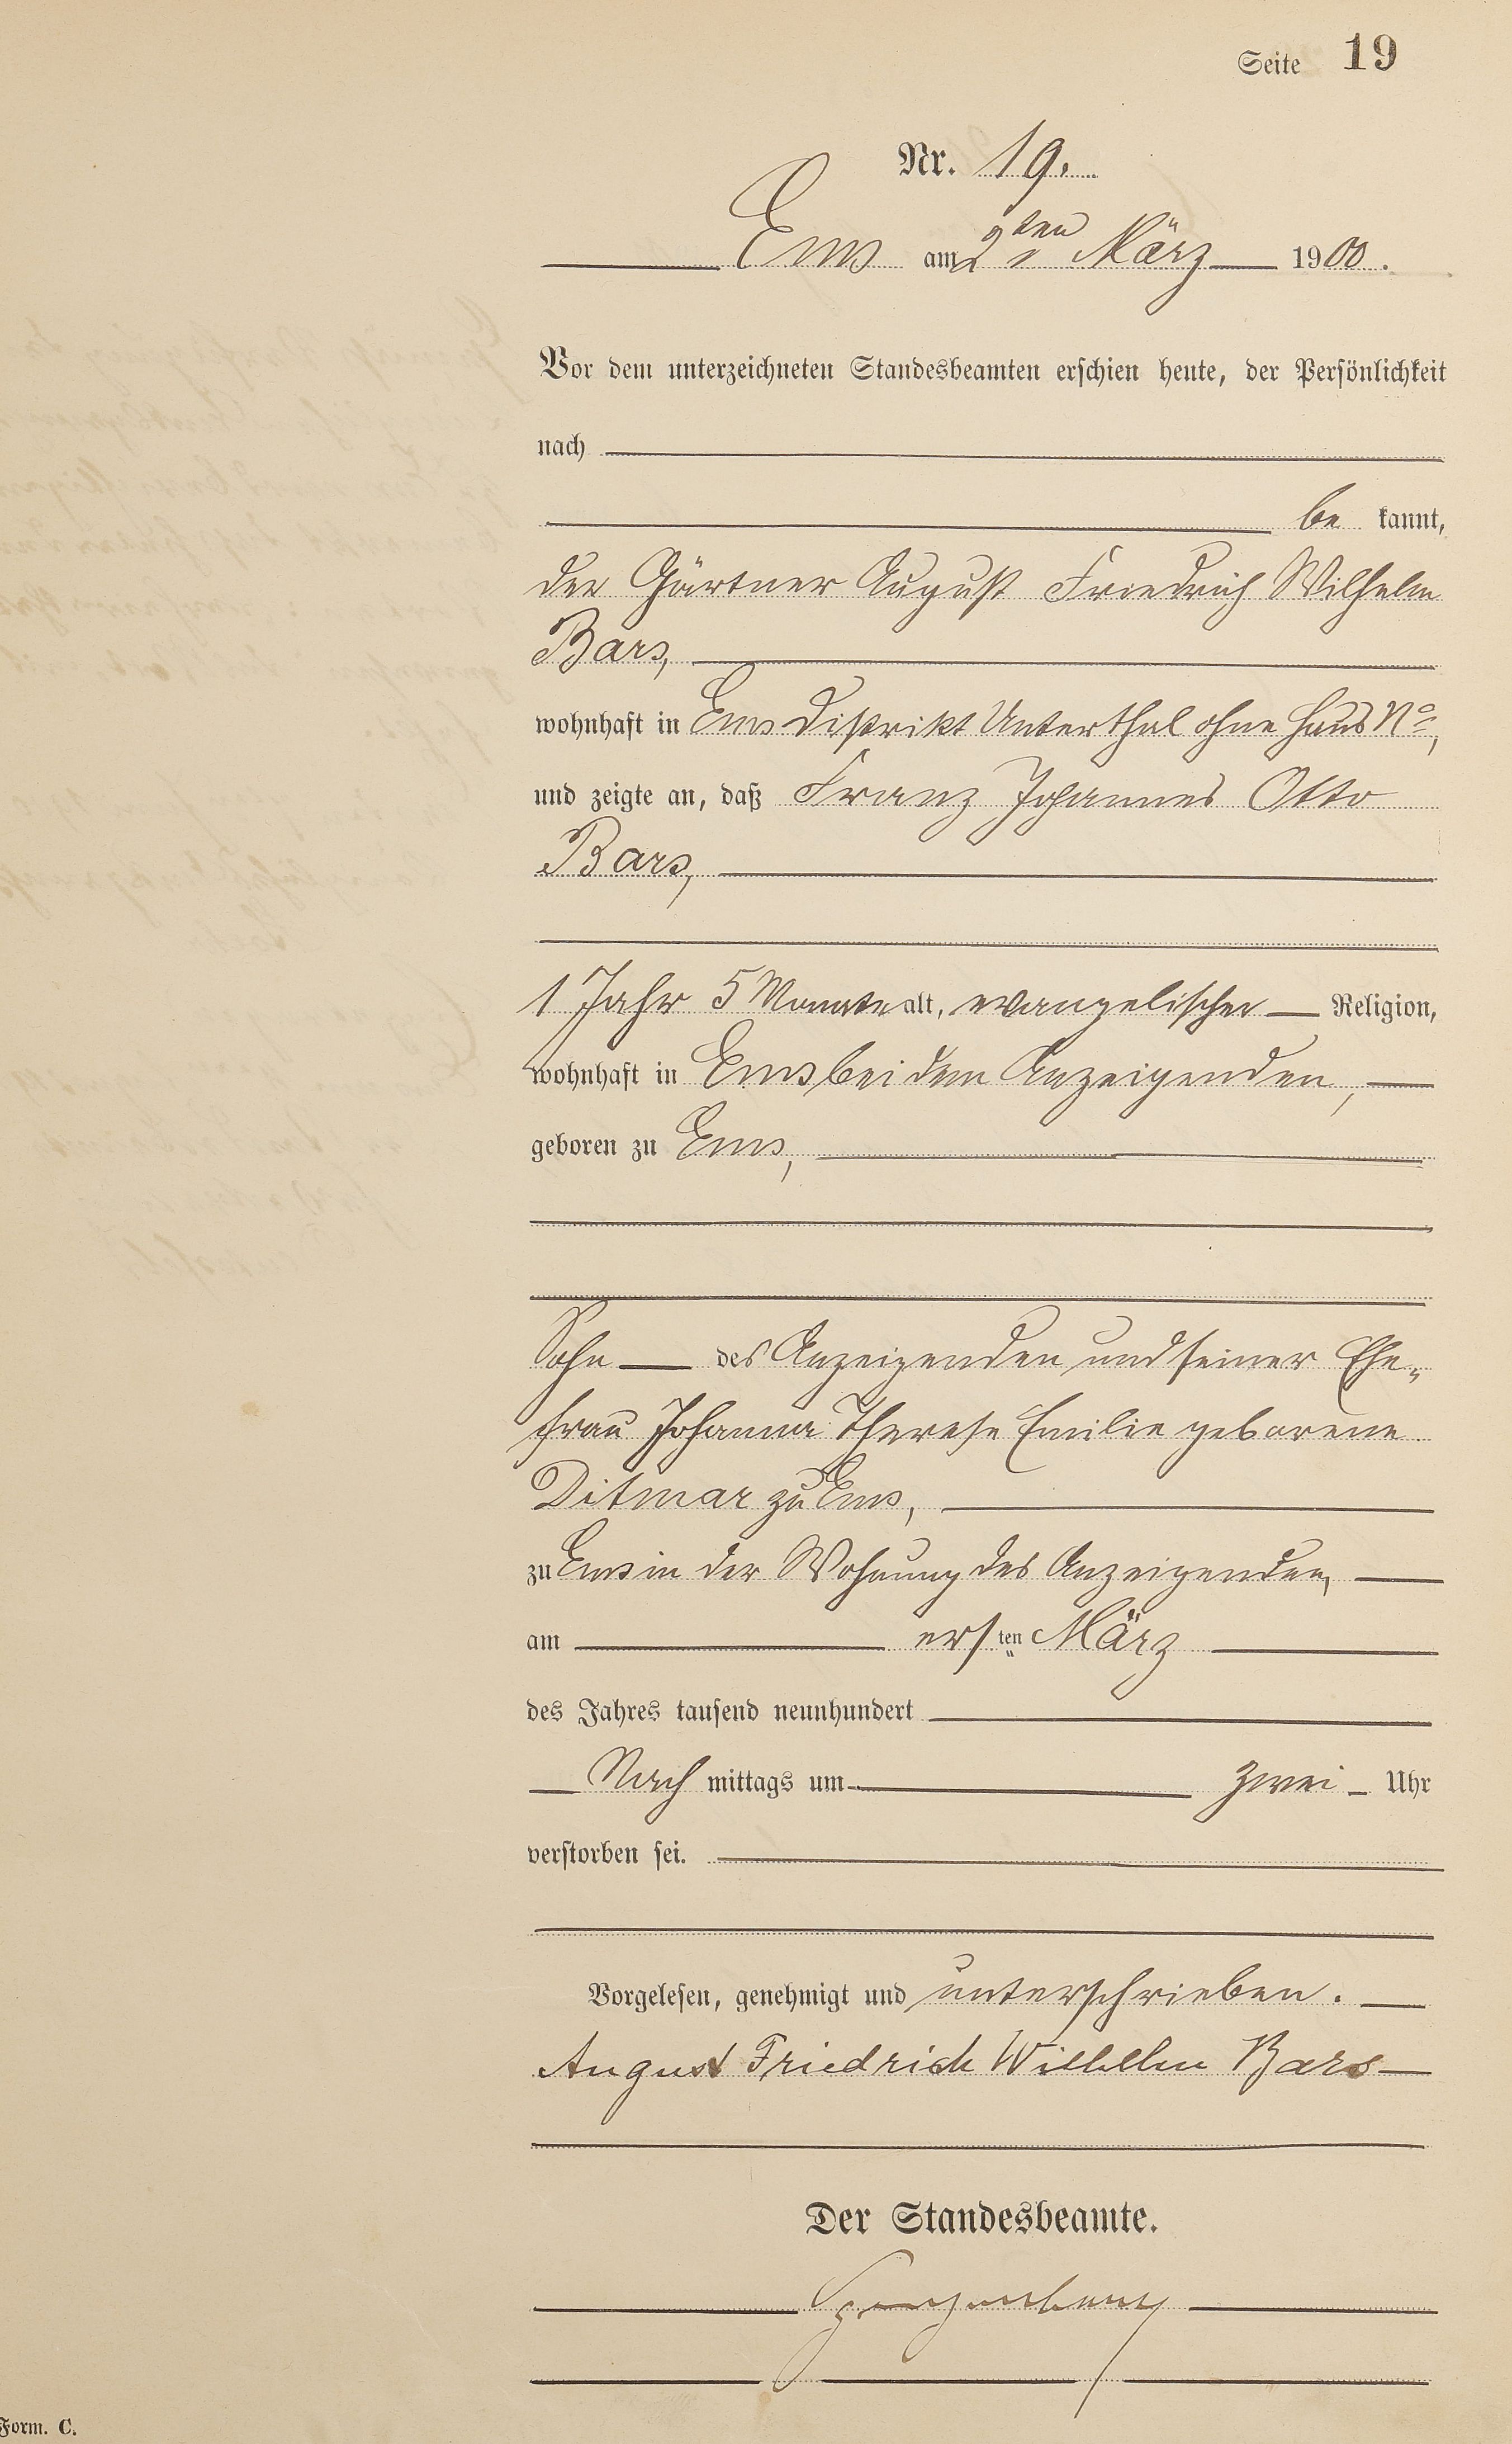 Seite 19
Nr. 19.
Ems am 2ten März 1900.
Vor dem unterzeichneten Standesbeamten erschien heute, der Persönlichkeit
nach
be kannt,
der Gärtner August Friedrich Wilhelm
Bars,
wohnhaft in Ems Distrikt Unterthal ohne Haus No,
und zeigte an, daß Franz Johannes Otto
Bars,
1 Jahr 5 Monate alt, evangelischer Religion,
wohnhaft in Ems bei dem Anzeigenden,
geboren zu Ems,
Sohn des Anzeigenden und seiner Ehe-
frau Johanna Therese Emilie geborene
Ditmar zu Ems,
zu Ems in der Wohnung des Anzeigenden,
am ersten März
des Jahres tausend neunhundert
Nach mittags um zwei Uhr
verstorben sei.
Vorgelesen, genehmigt und unterschrieben.
August Friedrich Wilhelm Bars
Der Standesbeamte.
Form. C.